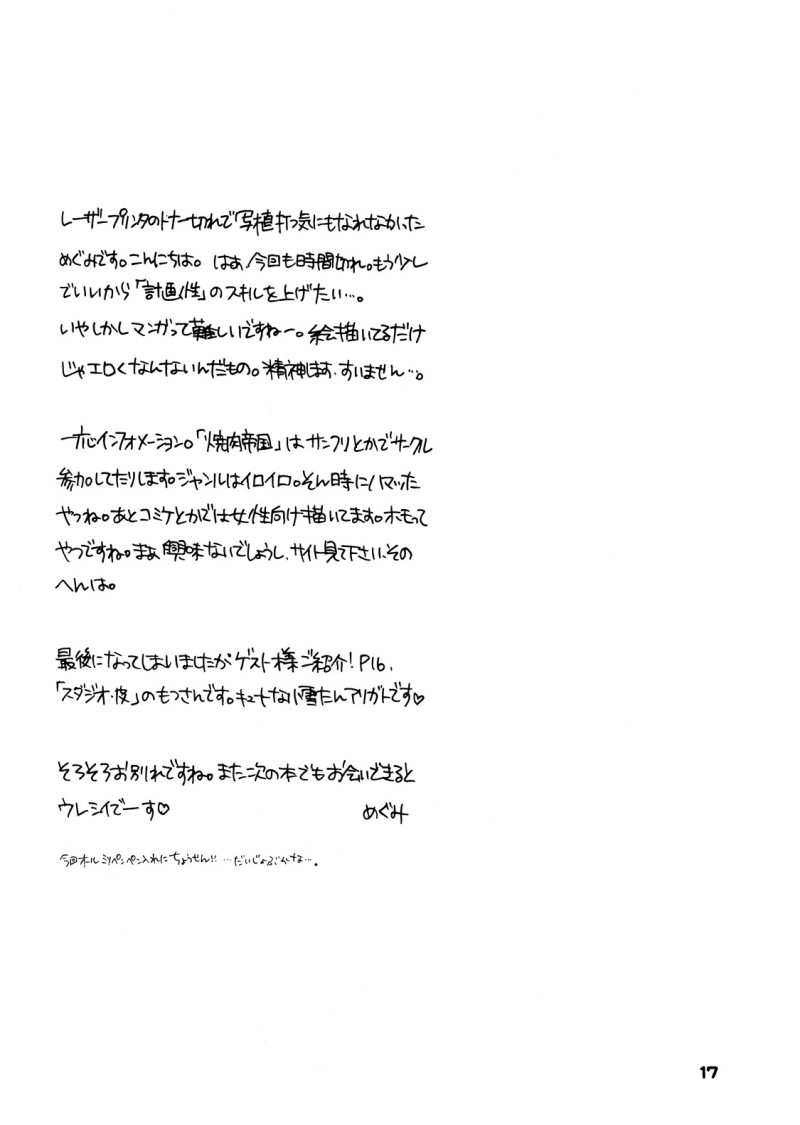 レーザープリンタのトナー切れで写植打つ気にもなれなかった
めぐみです。こんにちは。はぁ、今回も時間切れ。もう少し
でいいから「計画性」のスキルを上げたい…。
いやしかしマンガって難しいですねー。絵描いてるだけ
じゃエロくなんないんだもの。精神します、すいません…。
インフォメーション。「焼肉帝国」はサンクリとかでサークル
参加してたりします。ジャンルはイロイロ。そん時にハマッた
やつね。あとコミケとかでは女性向け描いてます。ホもって
やつですね。まぁ興味ないでしょうし、サイト見て下さい、その
へんは。
最後になってしまいましたがゲスト様ご紹介！P16、
「スタジオ・夜」のもつさんです。キュートな雪たんアリガトです♡
そろそろお別れですね。また次の本でもお会いできると
ウレシイでーす♡
めぐみ
今回オールミリペンペン入れにちょうせん!! …だいじょぶかな…。
17